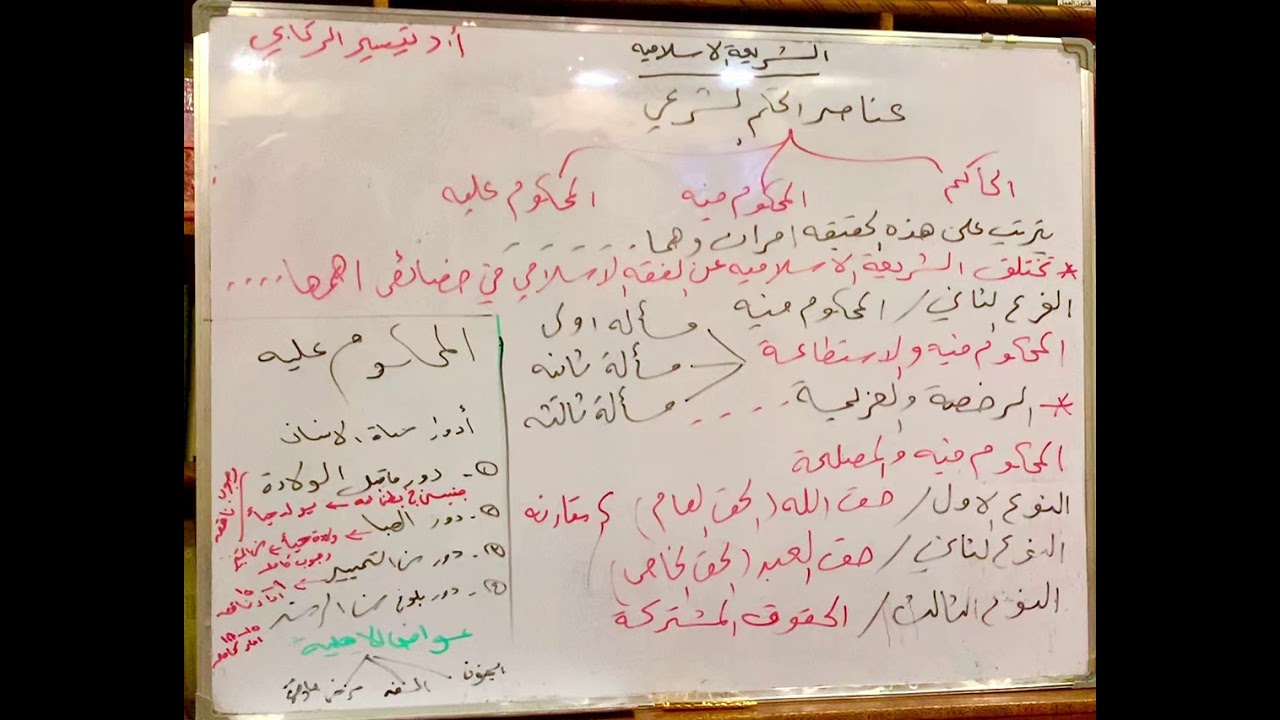 أ.د تيسير الركابي
الشريعة الاسلاميه
عناصر الحكم الشرعي
الحاكم المحكوم فيه المحكوم عليه
يترتب على هذه الحقيقه امران وهما....
* تختلف الشريعة الاسلاميه عن الفقه الاسلامي في خصائص اهمها....
الفرع الثاني/ المحكوم فيه
المحكوم فيه والاستطاعة
مسألة اولى
مسألة ثانيه
مسألة ثالثه
* الرخصة والعزيمة....
المحكوم فيه والمصلحة
النوع الاول/ حق الله (الحق العام) مقارنه
النوع الثاني/ حق العبد (الحق الخاص)
النوع الثالث/ الحقوق المشتركة
المحكوم عليه
أدوار حياة الانسان
١- دور ما قبل الولادة
جنيس في بطن امه ← يولد حيا
وجوب ناقصه
٢- دور الصبا ← ولادة حيا ← سن
وجوب كامله
٣- دور سن التمييز ← اداء ناقصه
٤- دور بلوغ سن الرشد
١٨ اداء كامله
عوارض الاهلية
الجنون السفه مرض